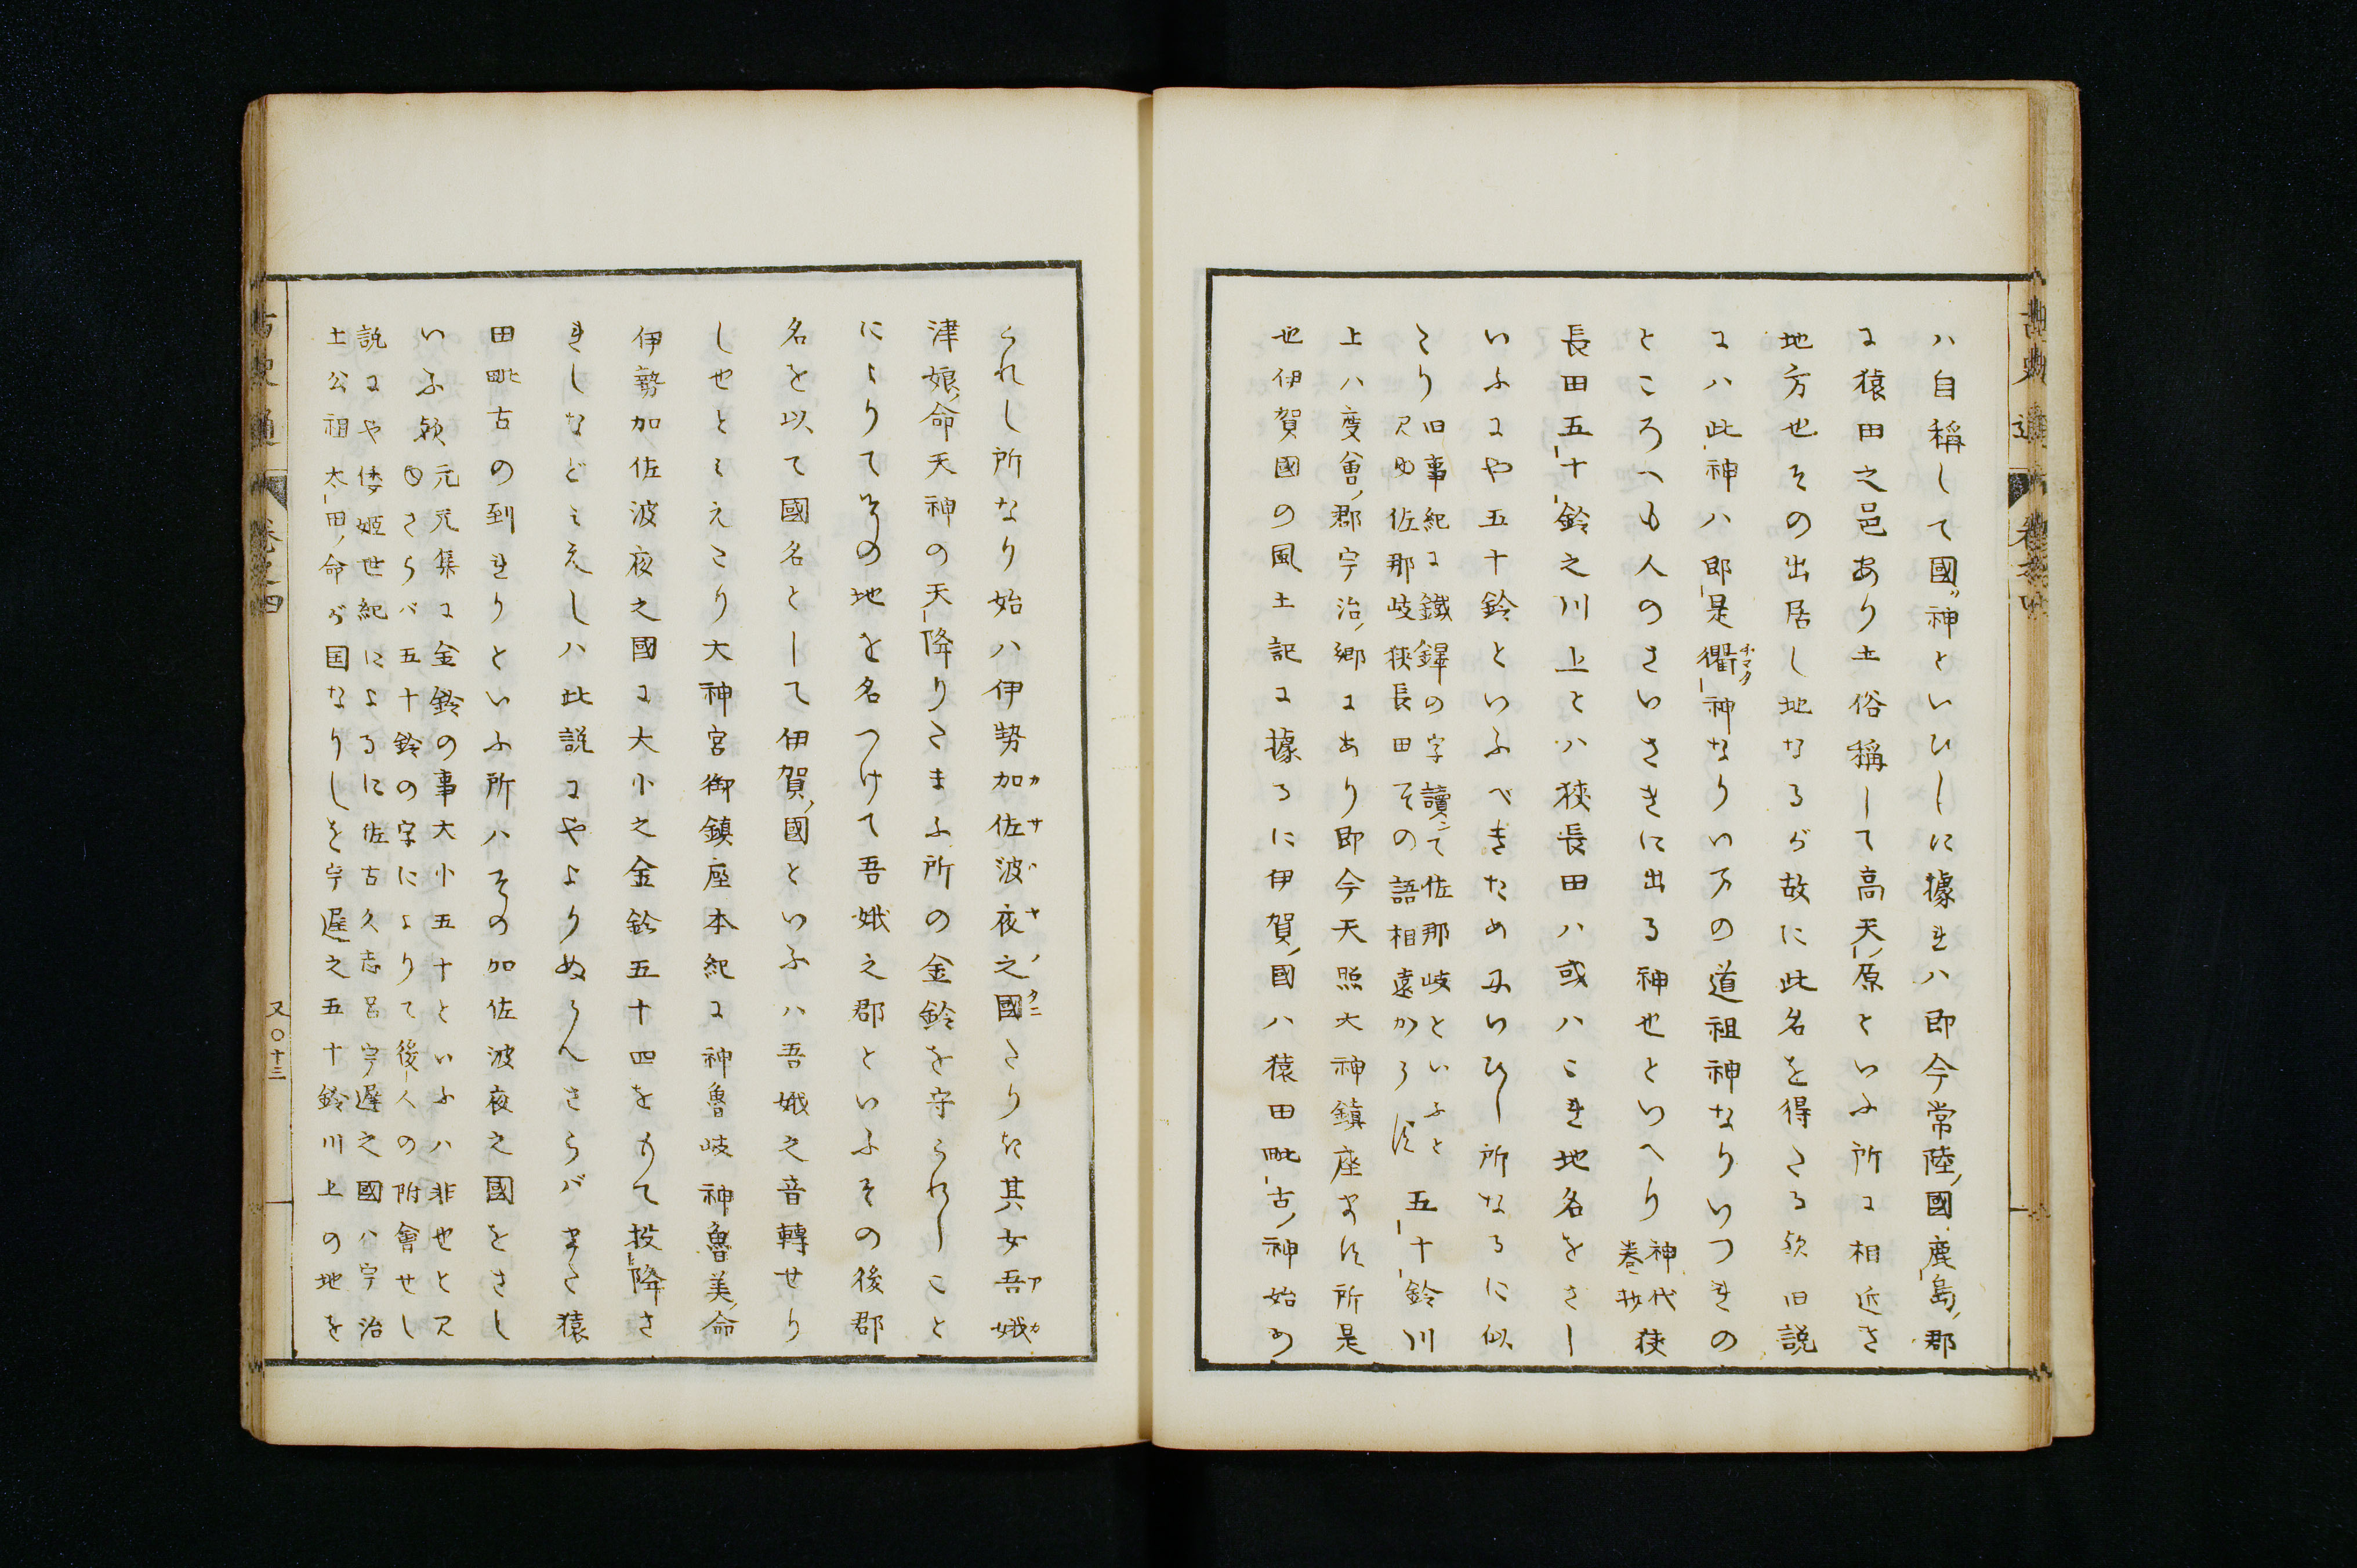 ハ自稱して國ッ神といひしに據れハ即今常陸ノ國鹿島ノ郡
に猿田之邑あり土俗稱して高天ノ原といふ所に相近き
地方也その出居し地なるが故に此名を得たる歟旧説
にハ此神ハ即是衢神なりいはの道祖神なりいつれの
チマタ
ところへも人のさいさきに出る神也といへり
神代
巻抄
狭
長田五十鈴之川上とハ狹長田ハ或ハこれ地名をさし
いふにや五十鈴といふべきためにいひし所なるに似
たり
旧事紀に鐵鐸の字讀て佐那岐といふと
見ゆ佐那岐狹長田その語相遠からす
五十鈴川
上ハ度會ノ郡宇治ノ郷にあり即今天照大神鎮座ます所是
也伊賀國の風土記に據るに伊賀ノ國ハ猿田毗古ノ神始め
られし所なり始ハ伊勢加佐波夜之國たりき其女吾娥
カサハヤノクニ
アカ
津娘ノ命天神の天降りたまふ所の金鈴を守られしこと
によりてその地を名つけて吾娥之郡といふその後郡
名を以て國名として伊賀ノ國といふハ吾娥之音轉せり
しせとミえたり大神宮御鎮座本紀に神魯岐神魯美ノ命
伊勢加佐波夜之國に大小之金鈴五十四をもて投降さ
れしなどミえしハ此説にやよりぬらんさらバまた猿
田毗古の到れりといふ所ハその加佐波夜之國をさし
いふ歟
元元集に金鈴の事大小五十といふハ非也とス
自さらバ五十鈴の字によりて後人の附會せし
説にや倭姫世紀によるに佐古久志呂宇遅之國ハ宇治
土公祖太田ノ命が国なりしを宇遅之五十鈴川上の地を
古史通
巻之四
又〇十三